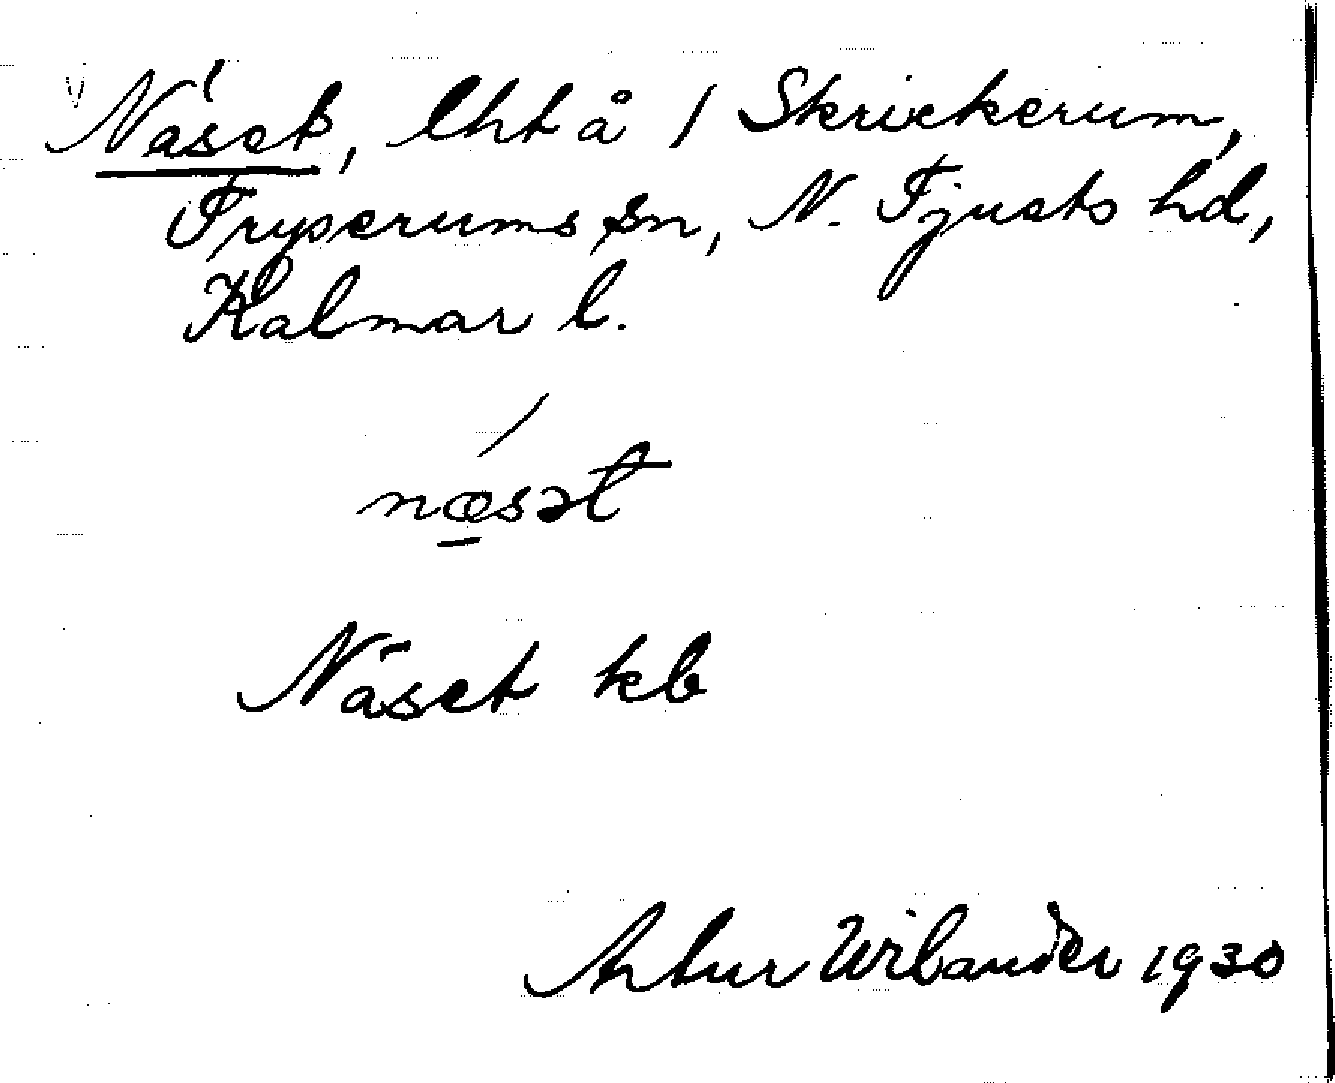 Näset, lht å 1 Skrickerum,
Tryserums sn, N. Tjusts hd,
Kalmar l.
næsət
Näset kb
Artur Wilander 1930